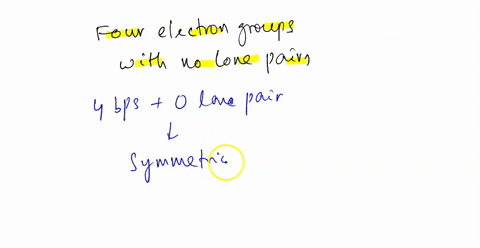 Four electron groups
with no lone pairs
4 bps + 0 lone pair
↓
Symmetric